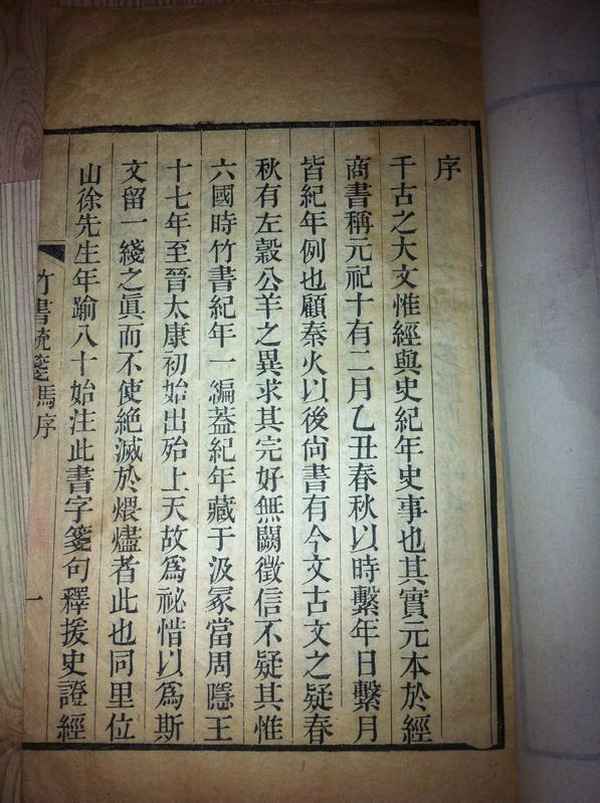 序
千古之大文惟經與史紀年史事也其實元本於經
商書稱元祀十有二月乙丑春秋以時繫年日繫月
皆紀年例也顧秦火以後尚書有今文古文之疑春
秋有左穀公羊之異求其完好無闕徵信不疑其惟
六國時竹書紀年一編葢紀年藏于汲冢當周隱王
十七年至晉太康初始出殆上天故爲祕惜以爲斯
文留一綫之眞而不使絕滅於煨燼者此也同里位
山徐先生年踰八十始注此書字箋句釋援史證經
竹書統箋馬序
一